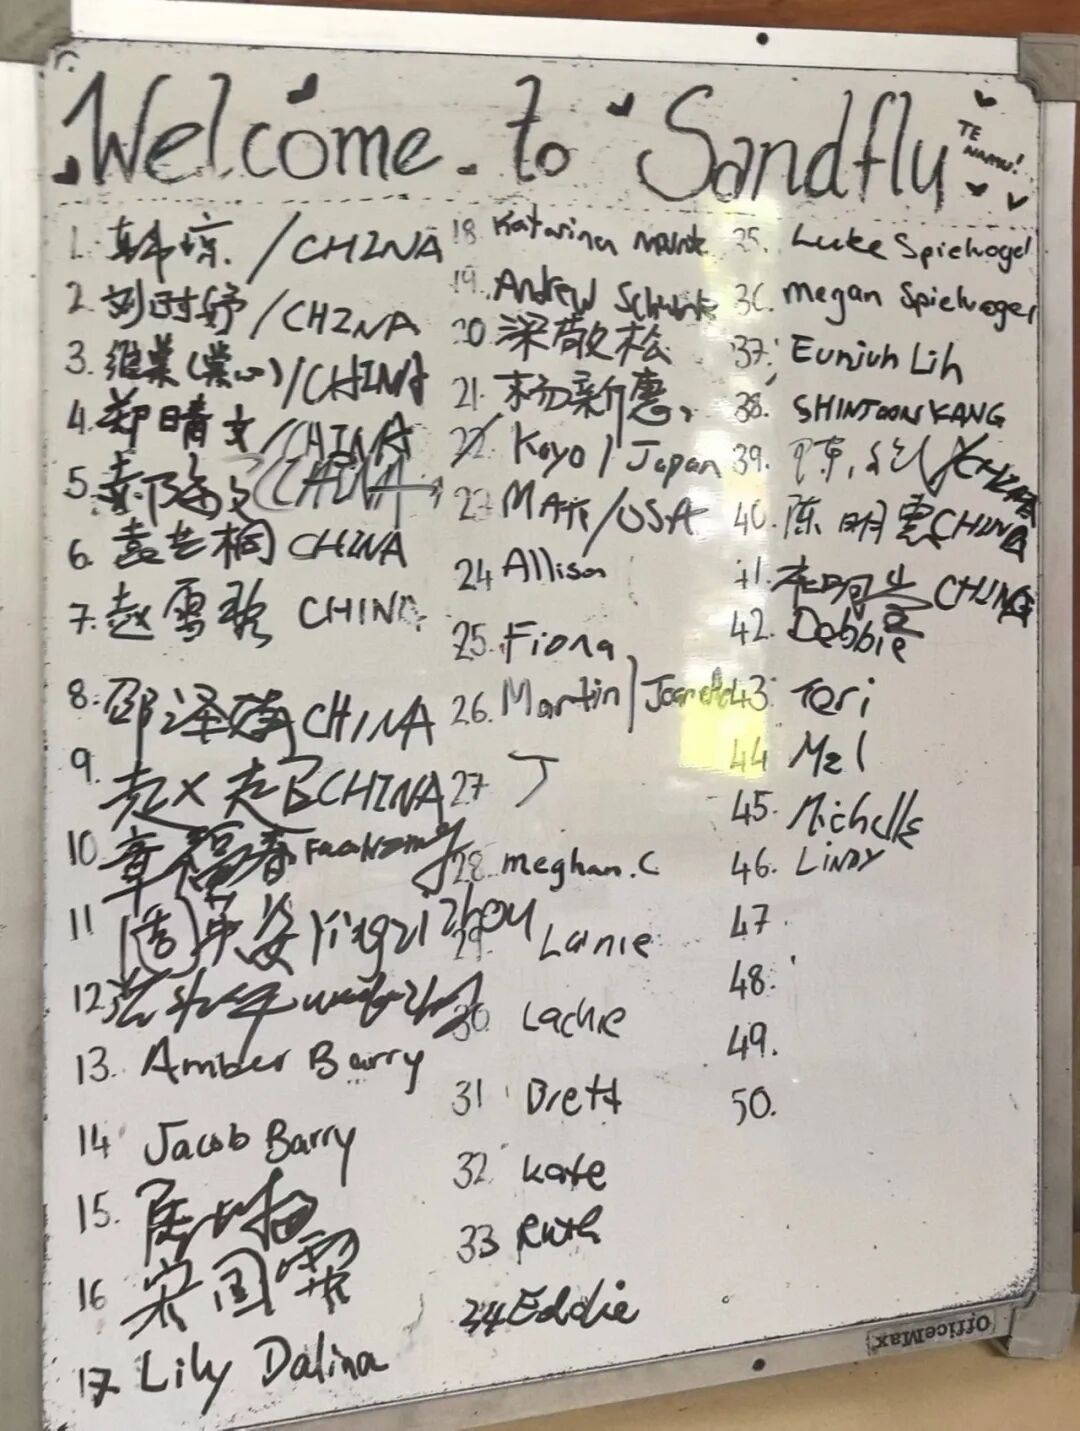 Welcome to Sandfly
TE
NAMU!
1. 韩琼 / CHINA
2. 刘时妤 / CHINA
3. / CHINA
4. 郑晴文 / CHINA
5. CHINA
6. 袁艺桐 CHINA
7. 赵雪 CHINA
8. 邵泽 CHINA
9. CHINA
10. 章福春
11 周 Yingzi Zhou
12
13. Amber Barry
14 Jacob Barry
15.
16 宋国霞
17 Lily Dalina
18 Katarina
19. Andrew
20 梁敬松
21. 杨新惠
22. Koyo / Japan
23 / USA
24 Allison
25. Fiona
26. Martin /
27 J
28 meghan.C
29 Lainie
30 Lachie
31 Brett
32 Kate
33 Ruth
34 Eddie
35. Luke Spielvogel
36. Megan Spielvogel
37. Eunjuh Lih
38. SHINJOON KANG
39.
40. 陈明 CHINA
41.
42. Debbie
43 Teri
44 Mel
45. Michelle
46. LINDY
47
48.
49.
50.
OfficeMax